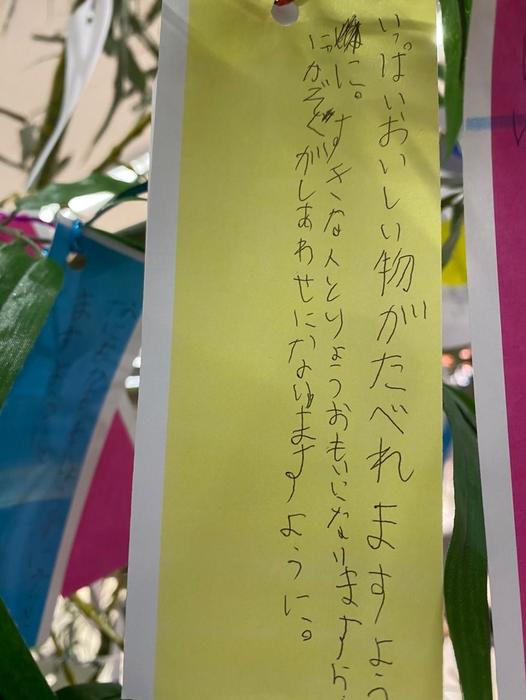 いっぱいおいしい物がたべれますよう
に。すきな人とりょうおもいになりますよう
にかぞくがしあわせになりますように。